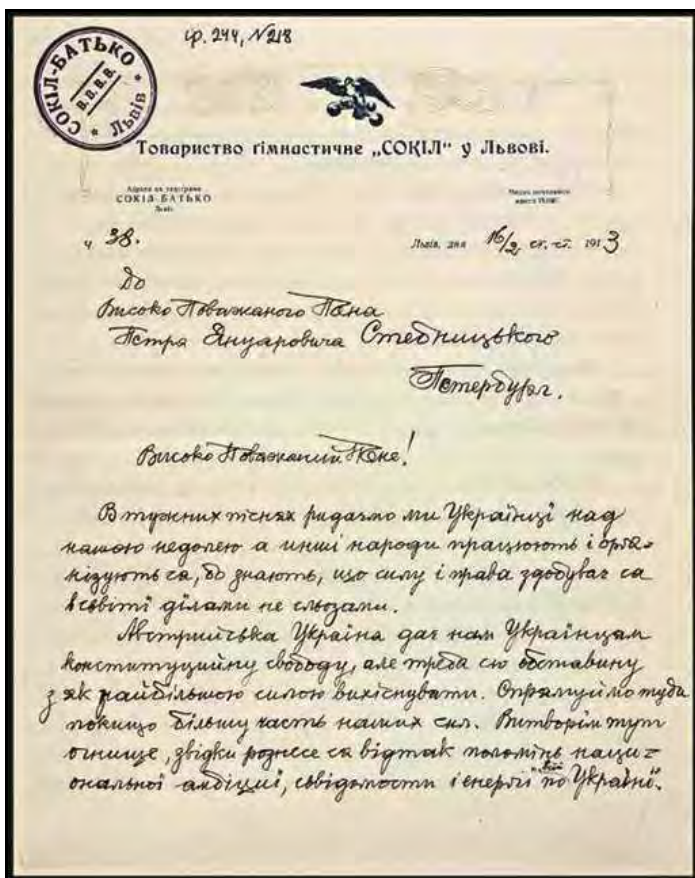 ф. 244, N 218
СОКІЛ-БАТЬКО
В.В.В.В.
* Львів *
Товариство гімнастичне „СОКІЛ" у Львові.
Адреса на телєграми
СОКІЛ-БАТЬКО
Львів.
ч 38.
Львів, дня 16/2 ст. ст. 1913
До
Високо Поважаного Пана
Петра Януаровича Стебницького
Петербург.
Високо Поважаний Пане!
В тужних піснях ридаємо ми Українці над
нашою недолею а инші народи працюють і орґа-
нізують ся, бо знають, що силу і права здобуває ся
в сьвіті ділами не сльозами.
Австрийська Україна дає нам Українцам
конституцийну свободу, але треба сю обставину
з як найбільшою силою вихіснувати. Спрямуймо туди
покищо більшу часть наших сил. Витворім тут
огнище, звідки рознесе ся відтак поломінь наци=
ональної амбіциї, сьвідомости і енерґії по всій Україні.